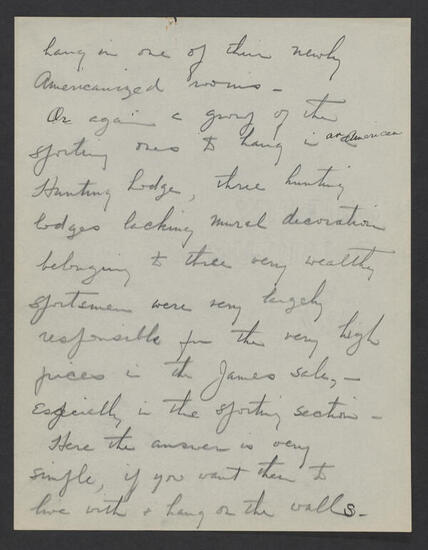 hang in one of their newly
Americanized rooms -
Or again a group of the
sporting ones to hang in an American
Hunting Lodge, three hunting
lodges lacking mural decoration
belonging to three very wealthy
sportsmen were very largely
responsible for the very high
prices in the James sale, -
Especially in the sporting section -
Here the answer is very
simple, if you want them to
live with & hang on the walls -